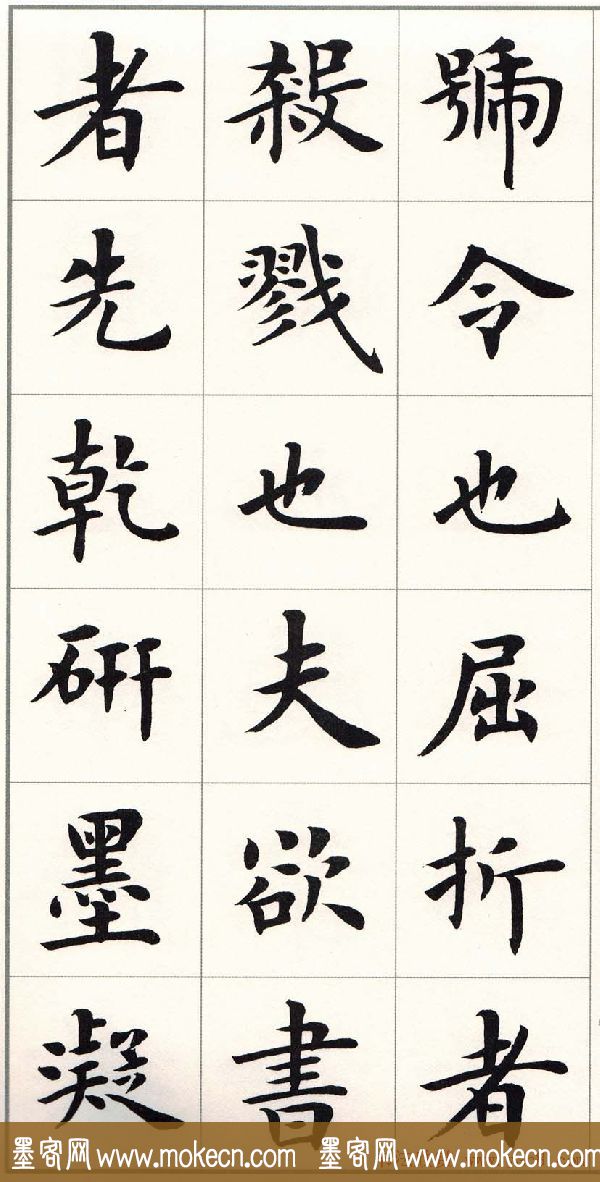 號令也屈折者
殺戮也夫欲書
者先乾研墨凝
墨客网 www.mokecn.com 墨客网 www.mokecn.com